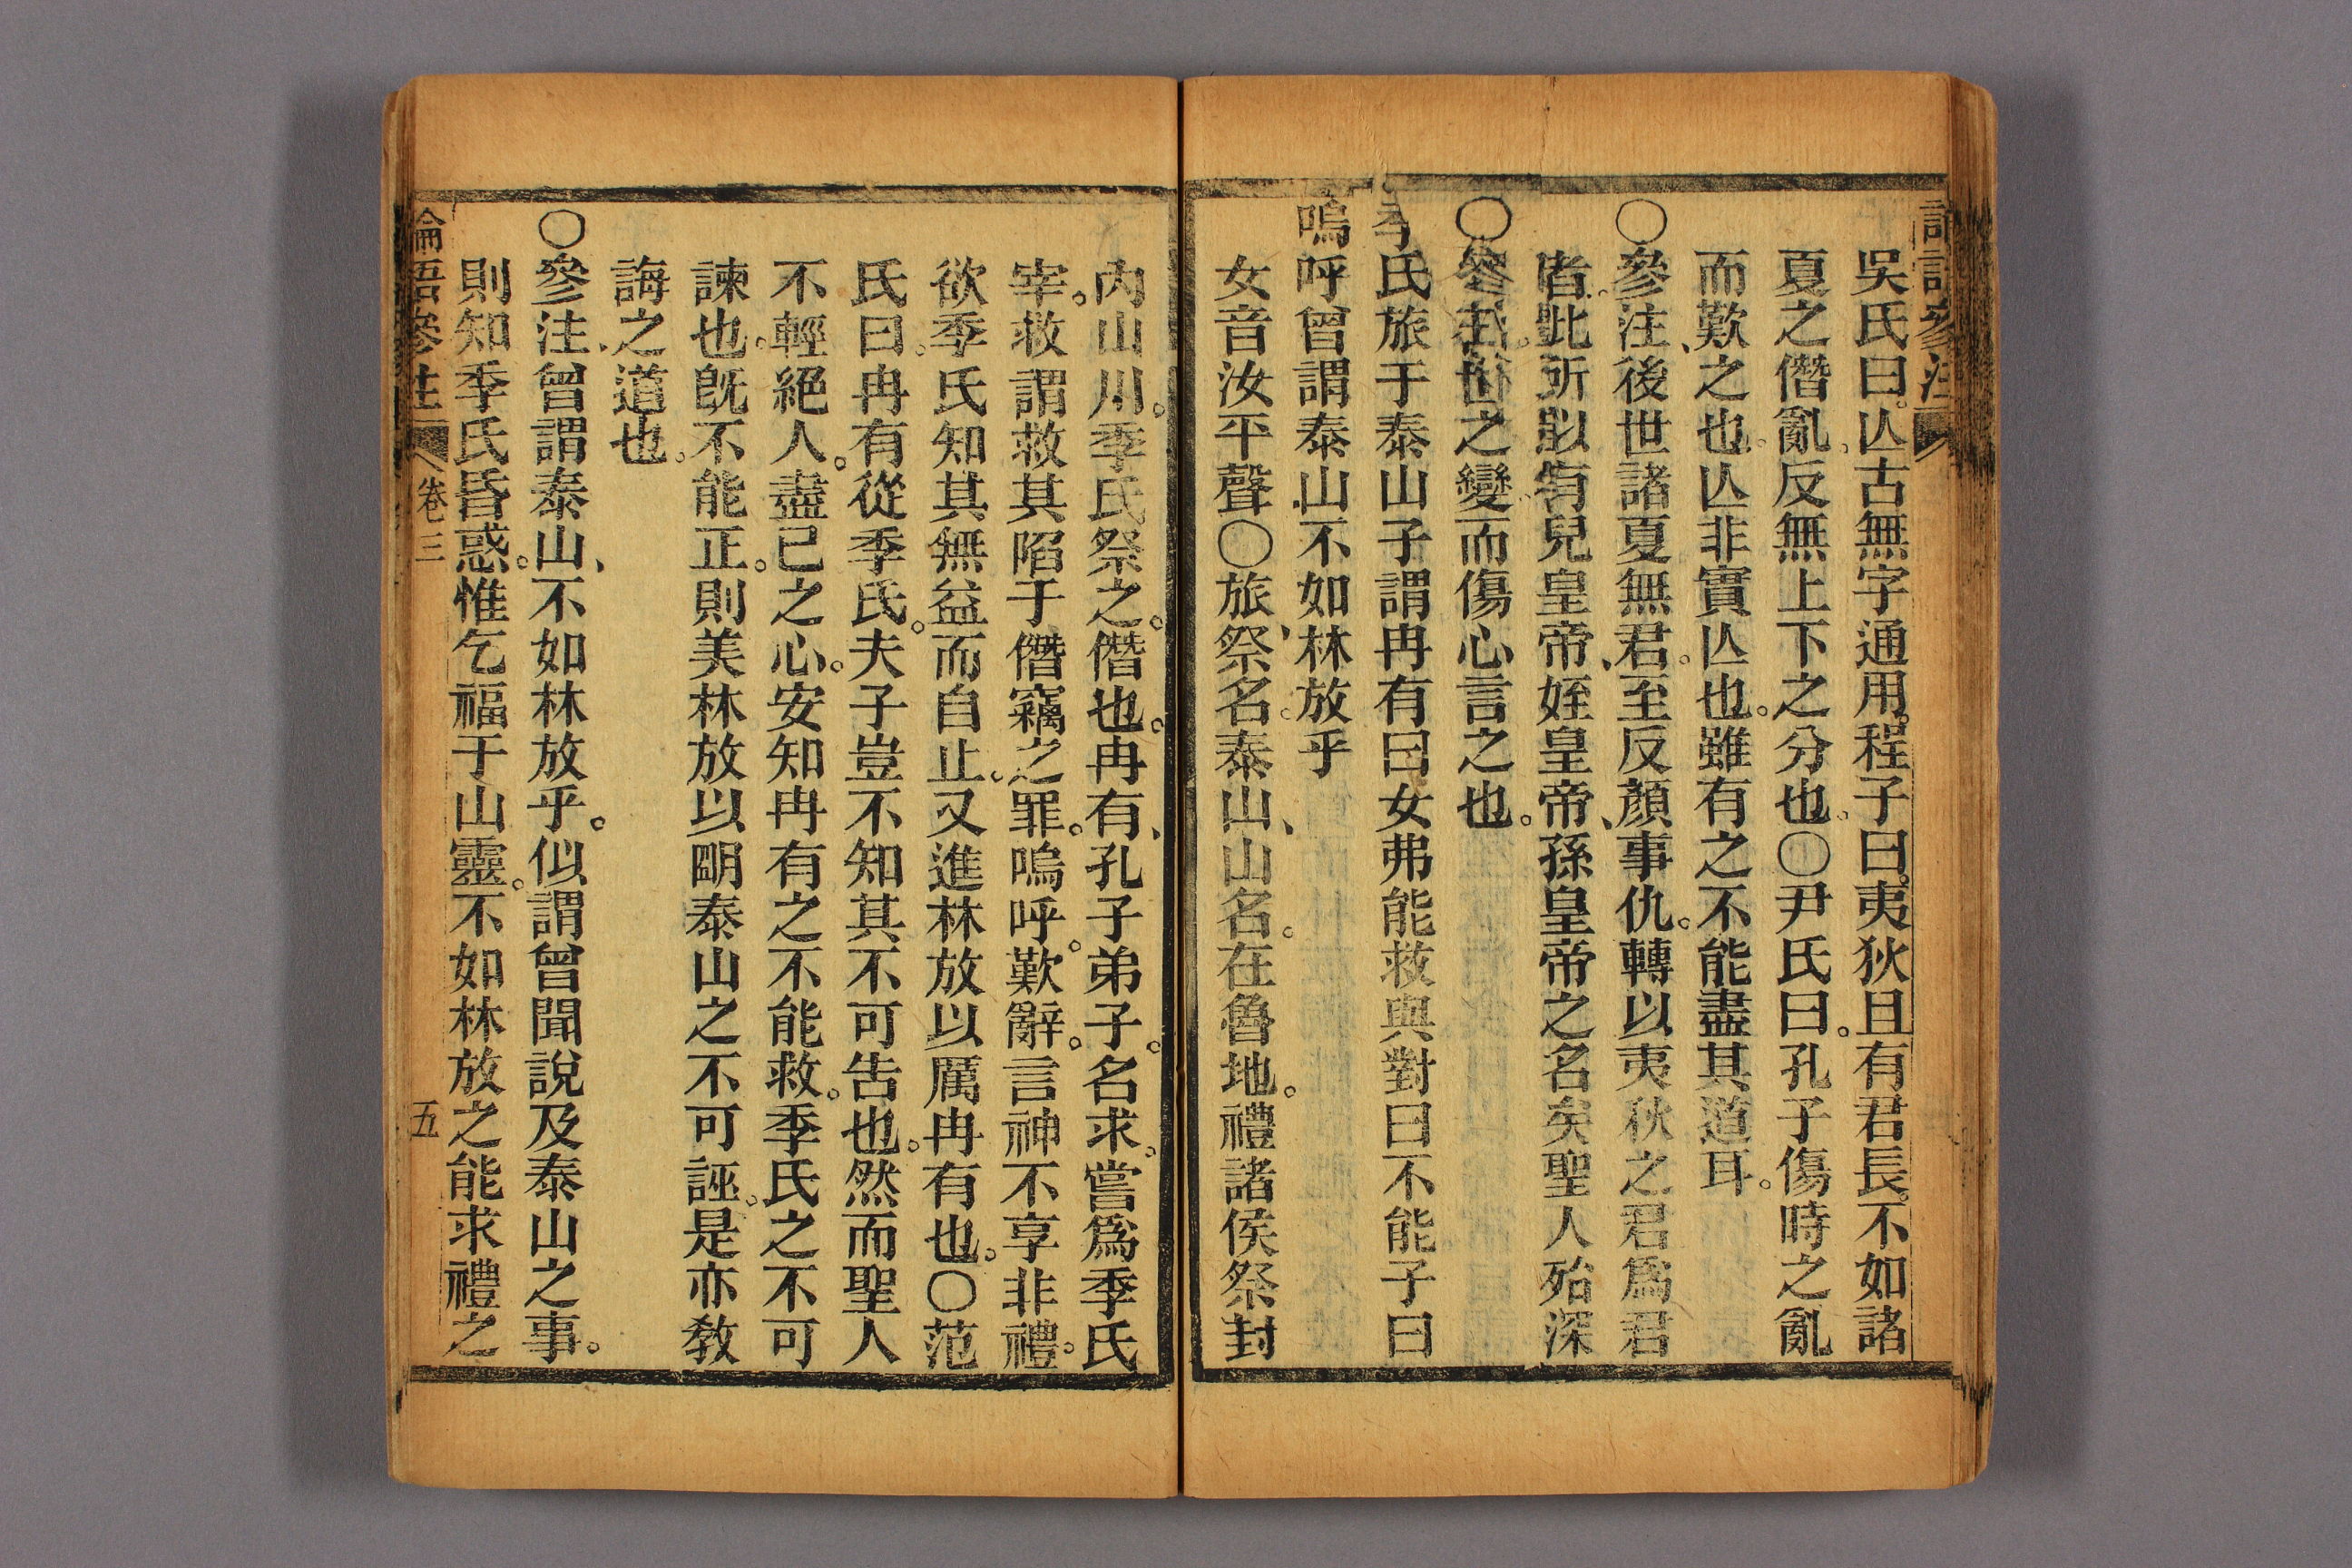 吳氏曰。亾古無字通用。程子曰。夷狄且有君長。不如諸
夏之僭亂。反無上下之分也。〇尹氏曰。孔子傷時之亂
而歎之也。亾非實亾也。雖有之不能盡其道耳。
〇參注、後世諸夏無君。至反顏事仇。轉以夷狄之君爲君
者。此所以有兒皇帝、姪皇帝、孫皇帝之名矣聖人殆深
世之變而傷心言之也。
季氏旅于泰山子謂冉有曰女弗能救與對曰不能子曰
嗚呼曾謂泰山不如林放乎
女音汝平聲〇旅、祭名。泰山、山名。在魯地。禮諸侯祭封
內山川。季氏祭之。僭也。冉有、孔子弟子。名求。嘗爲季氏
宰。救謂救其陷于僭竊之罪。嗚呼。歎辭。言神不享非禮。
欲季氏知其無益而自止。又進林放以厲冉有也。〇范
氏曰。冉有從季氏。夫子豈不知其不可告也。然而聖人
不輕絕人。盡已之心。安知冉有之不能救。季氏之不可
諫也。旣不能正。則美林放以明泰山之不可誣。是亦敎
誨之道也。
〇參注、曾謂泰山、不如林放乎。似謂曾聞說及泰山之事。
則知季氏昏惑。惟乞福于山靈。不如林放之能求禮之
論語參注 卷三 五